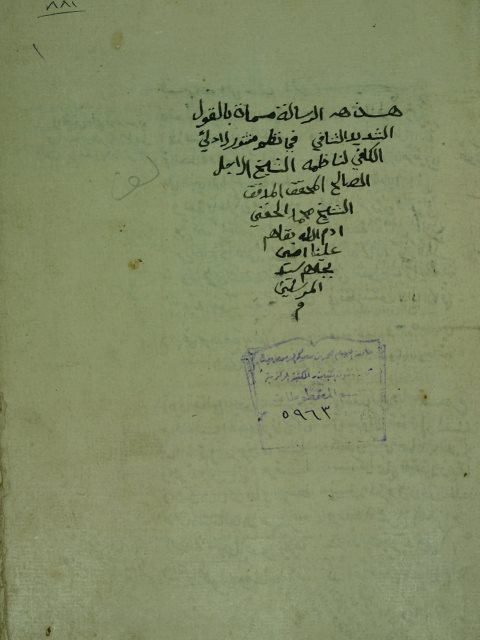 ٨٨٢
١
هذه الرسالة مسماة بالقول
السديد الشافي في نظم منثور
الكافي لناظمه الشيخ الاجل
الصالح المحقق المدقق
الشيخ محمد الحفني
ادم الله بقاهم
علينا امين
بجاه سيد
المرسلين
م
قسم المخطوطات
٥٩٦٣